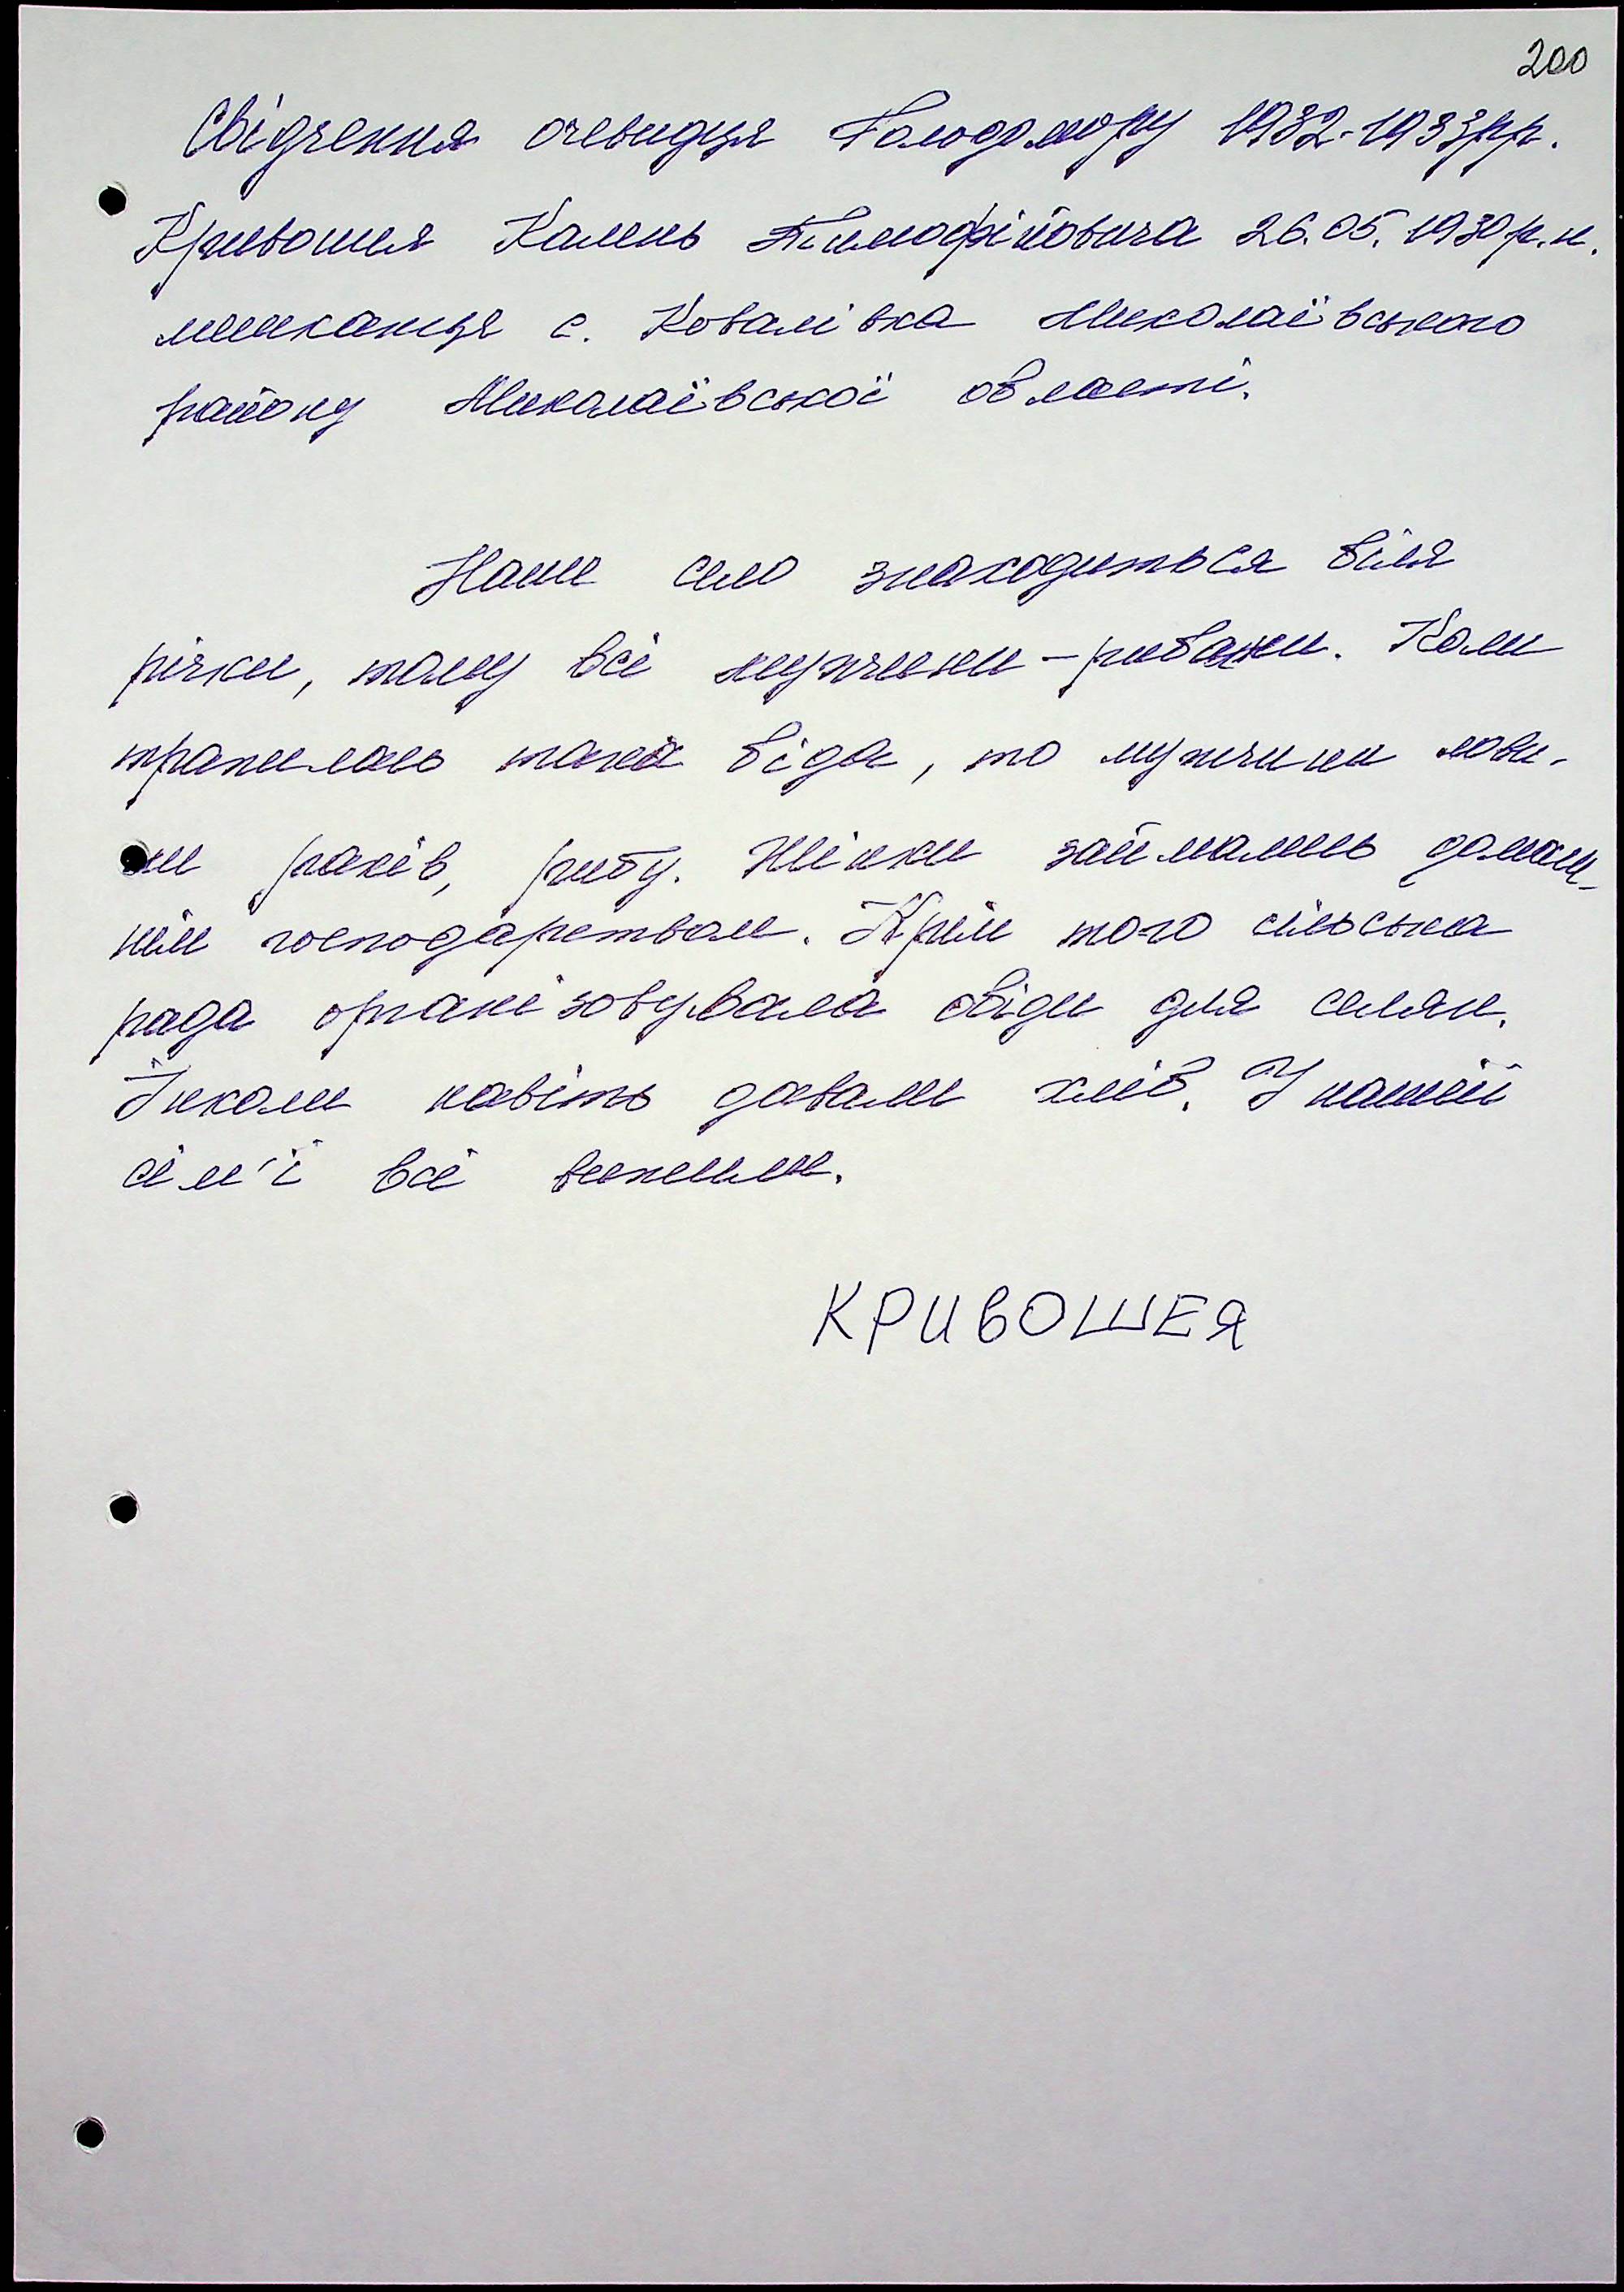 200
Свідчення очевидця Голодомору 1932-1933рр.
Кривошея Камень Тимофійовича 26.05.1930р.н.
мешканця с. Ковалівка Миколаївського
району Миколаївської області.
Наше село знаходиться біля
річки, тому всі мужчини - рибаки. Коли
трапилась така біда, то мужчини лови-
ли раків, рибу. Жінки займались домаш-
нім господарством. Крім того сільська
рада організовувала обіди для селян.
Інколи навіть давали хліб. У нашій
сім'ї всі вижили.
КРИВОШЕЯ